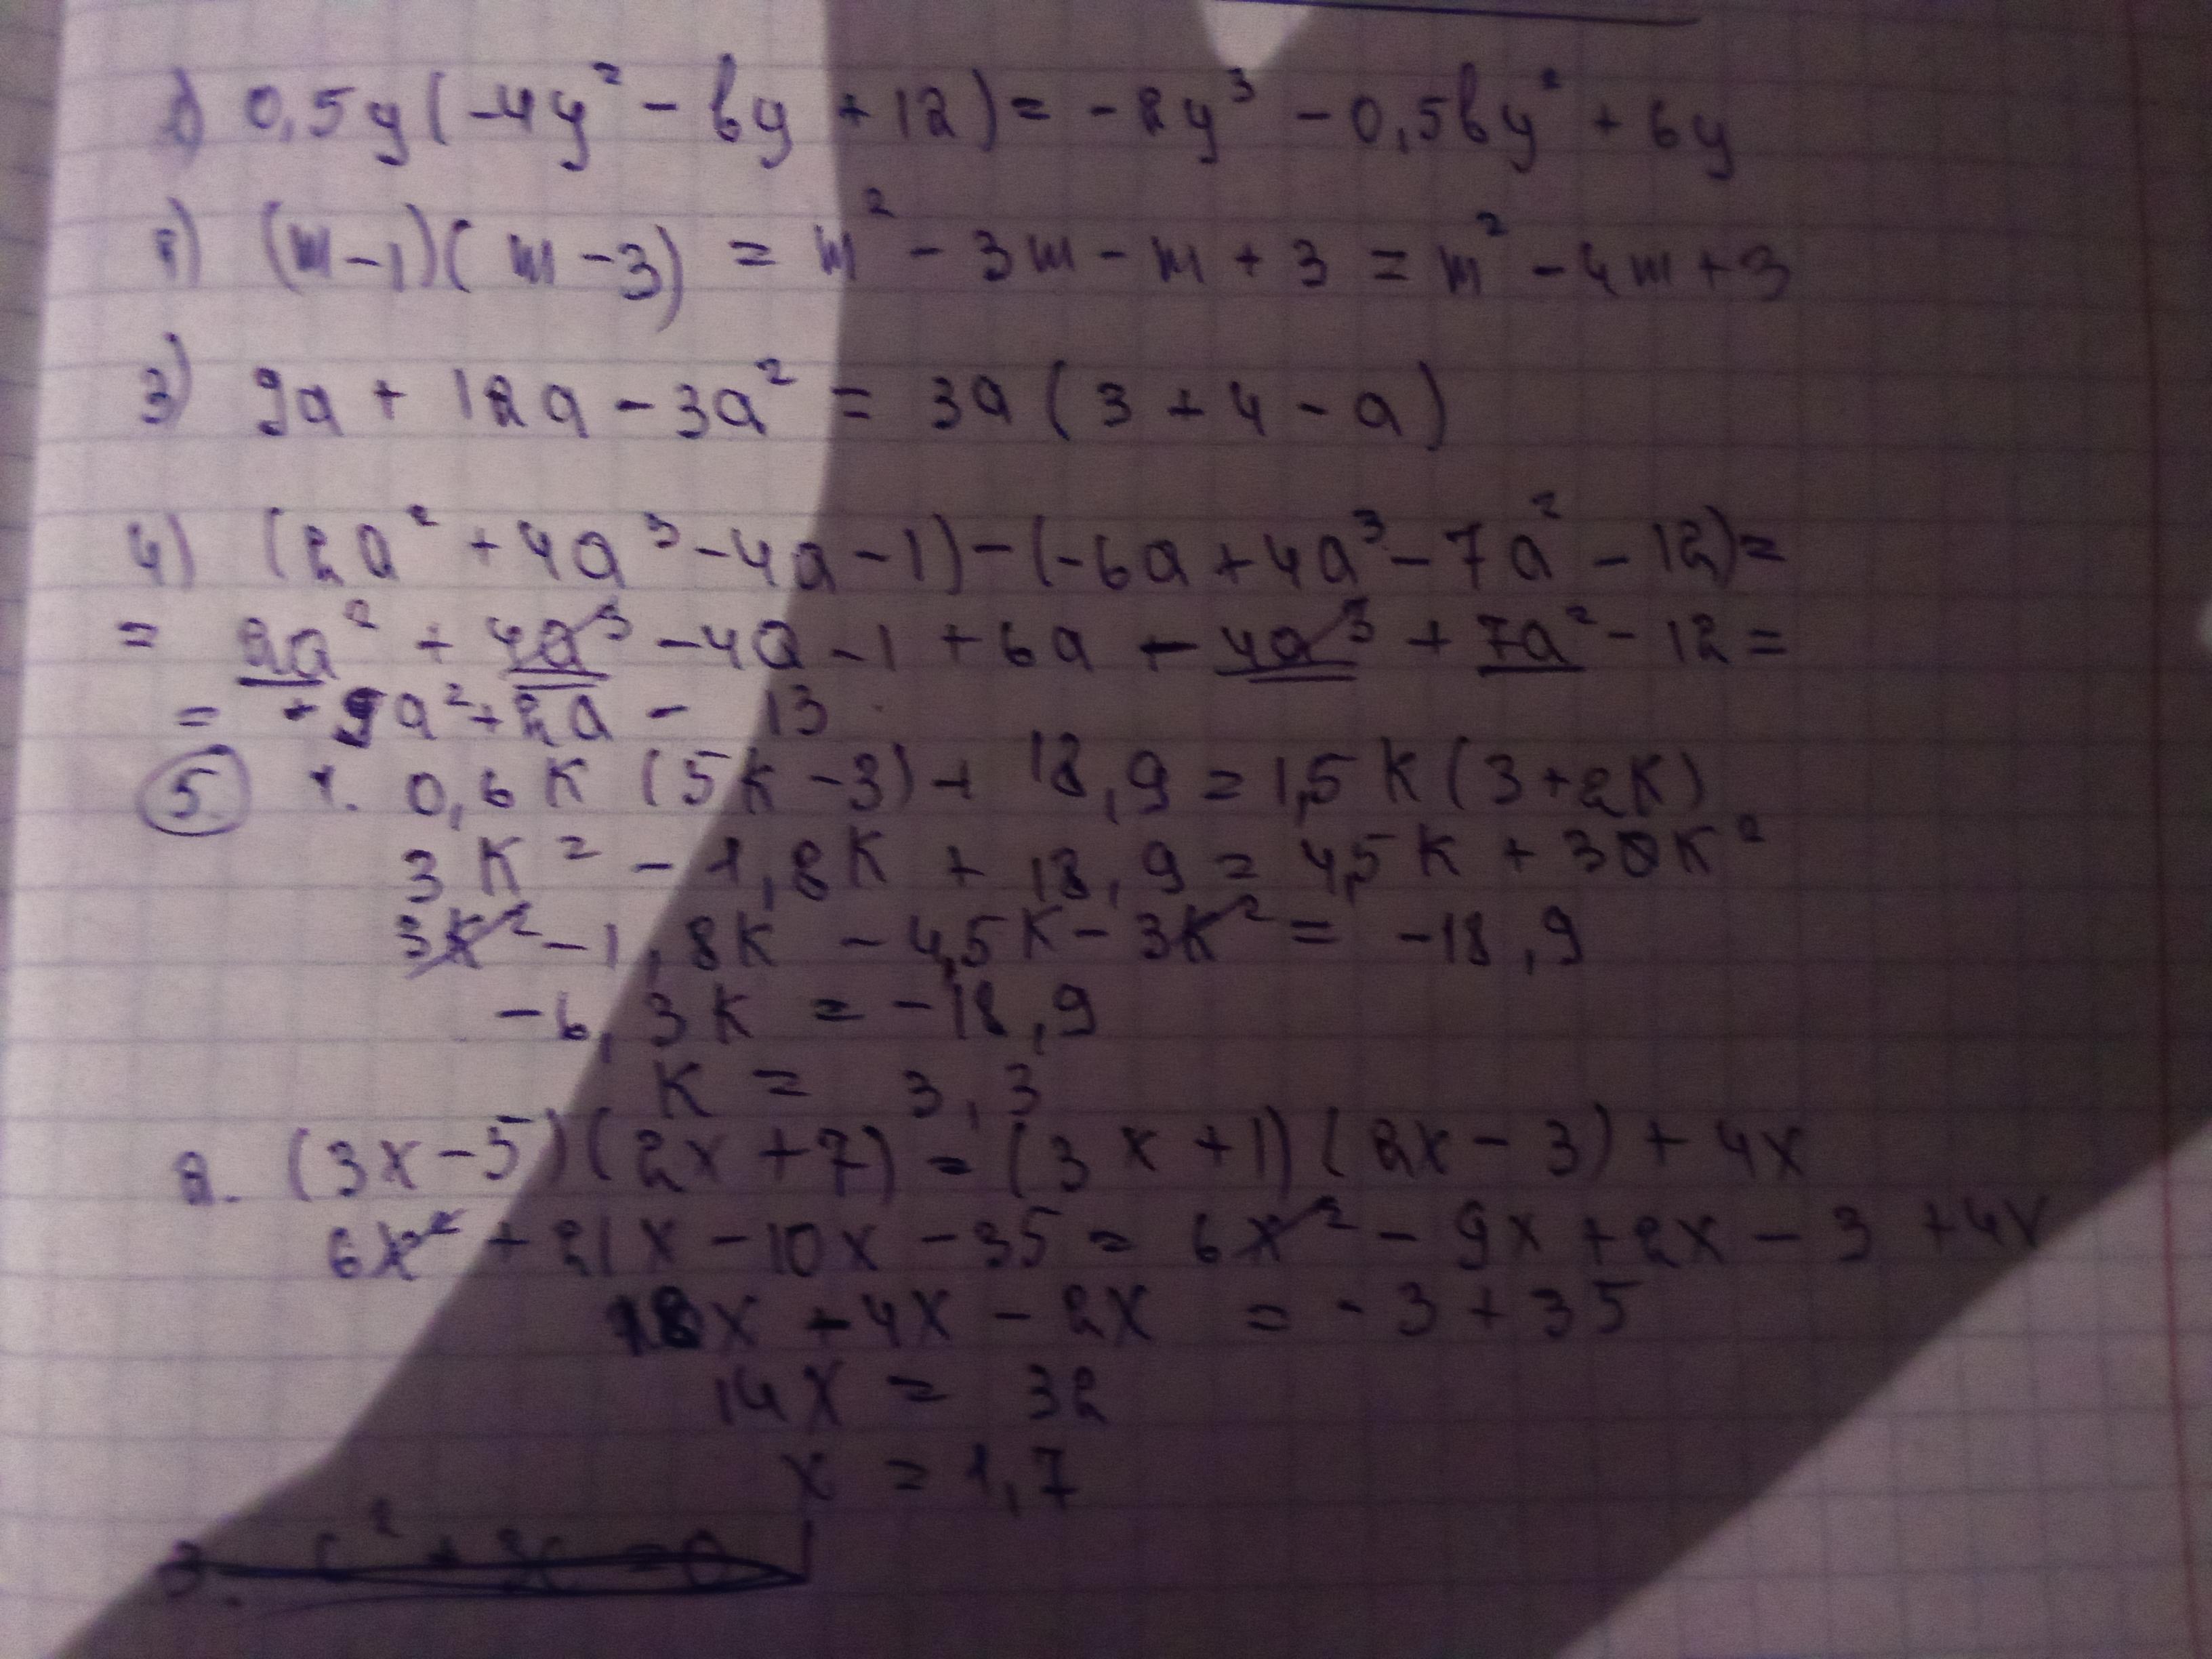 0,5y(-4y² - by + 12) = -2y³ - 0,5by² + 6y
(m-1)(m-3) = m² - 3m - m + 3 = m² - 4m + 3
3) 9a + 12a - 3a² = 3a(3 + 4 - a)
4) (2a² + 4a³ - 4a - 1) - (-6a + 4a³ - 7a² - 12) =
= 2a² + 4a³ - 4a - 1 + 6a - 4a³ + 7a² - 12 =
= + 9a² + 2a - 13
5. 1. 0,6k (5k - 3) + 18,9 = 1,5k(3 + 2k)
3k² - 1,8k + 18,9 = 4,5k + 30k²
3k² - 1,8k - 4,5k - 3k² = -18,9
-6,3k = -18,9
k = 3,3
2. (3x - 5)(2x + 7) = (3x + 1)(2x - 3) + 4x
6x² + 21x - 10x - 35 = 6x² - 9x + 2x - 3 + 4x
18x + 4x - 2x = -3 + 35
14x = 32
x = 1,7
3.